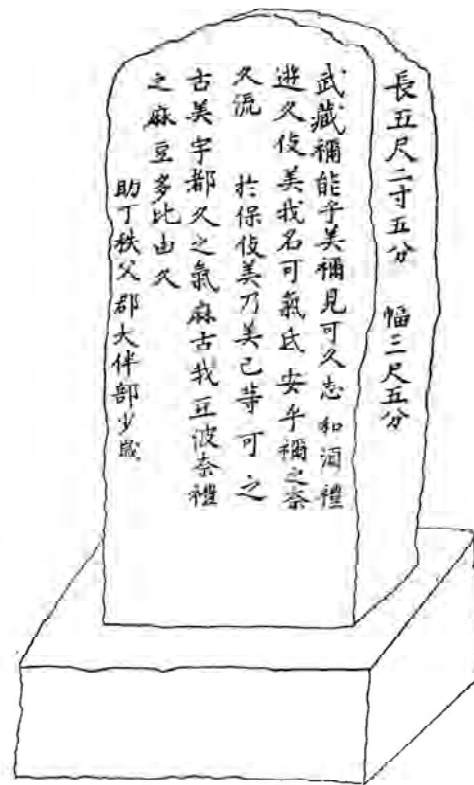 長五尺二寸五分　幅三尺五分
武蔵禰能乎美禰見可久志和酒禮
遊久伎美我名可氣氐安乎禰之奈
久流　於保伎美乃美己等可之
古美宇都久之氣麻古我弖波奈禮
之麻豆多比由久
助丁秩父郡大伴部少歳